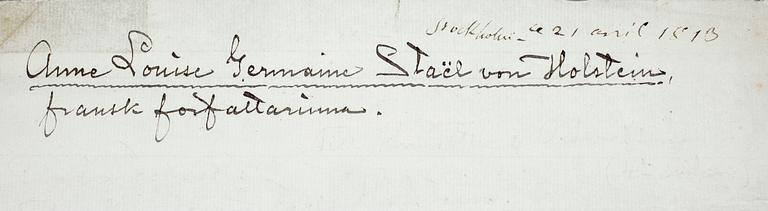 Stockholm – ce 21 avril 1813
Anne Louise Germaine Staël von Holstein,
fransk författarinna.